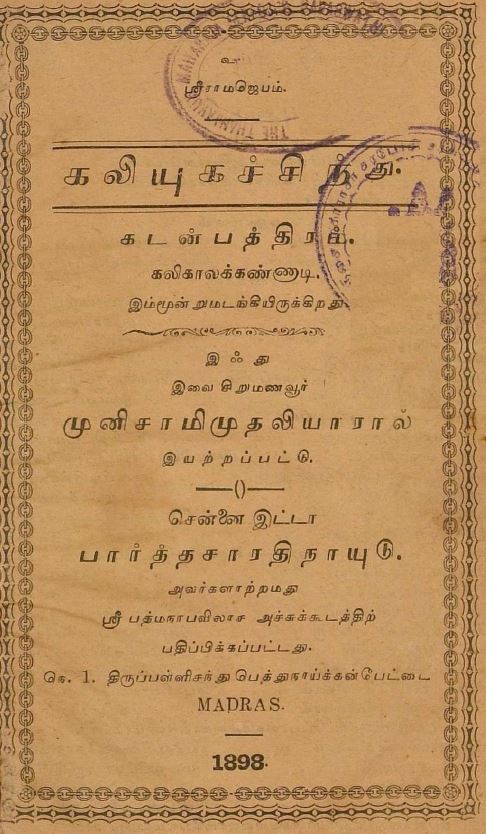 உ
ஸ்ரீராமஜெபம்.
கலியுகச்சிந்து.
கடன்பத்திரம்.
கலிகாலக்கண்ணாடி.
இம்மூன்றுமடங்கியிருக்கிறது.
இஃது
இவை சிறுமணவூர்
முனிசாமிமுதலியாரால்
இயற்றப்பட்டு.
சென்னை இட்டா
பார்த்தசாரதிநாயுடு.
அவர்களாற்றமது
ஸ்ரீ பத்மநாபவிலாச அச்சுக்கூடத்திற்
பதிப்பிக்கப்பட்டது.
நெ. 1. திருப்பள்ளிசந்து பெத்துநாய்க்கன்பேட்டை
MADRAS.
1898.